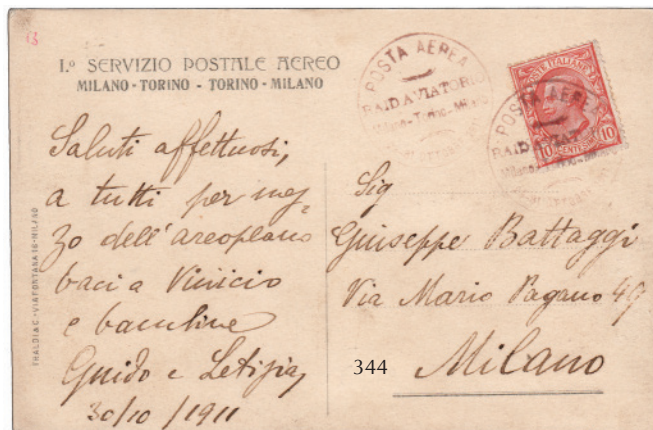 13
I.º SERVIZIO POSTALE AEREO
MILANO - TORINO - TORINO - MILANO
POSTA AEREA
RAID AVIATORIO
Milano - Torino - Milano
POSTE ITALIANE
10 CENTESIMI 10
POSTA AEREA
RAID AVIATORIO
Milano - Torino - Milano
Saluti affettuosi,
a tutti per mez-
zo dell'areoplano
baci a Vinicio
e bambine
Guido e Letizia
30/10/1911
Sig
Giuseppe Battaggi
Via Mario Pagano 49
Milano
344
FRALDI & C. - VIA FONTANA 16 - MILANO